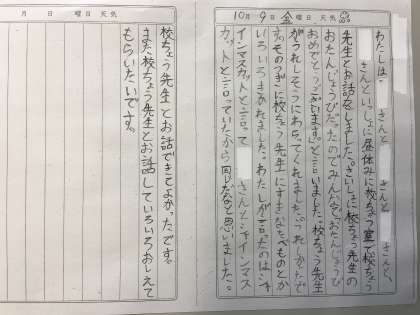 10月 9日 金曜日 天気
わたしは、 さんと さんと さんと、
さんといっしょに昼休みに校ちょう室で校ちょう
先生とお話をしました。さいしょに校ちょう先生の
おたんじょうびだったのでみんなで「おたんじょうび
おめでとうございます。」と言いました。校ちょう先生
がうれしそうにわらってくれました。うれしかったで
す。そのつぎに校ちょう先生にすきなたべものとか
いろいろきかれました。わたしが言ったのはシャ
インマスカットと言って さんとシャインマス
カットと言っていたから同じだなと思いました。
月 日 曜日 天気
校ちょう先生とお話できてよかったです。
また校ちょう先生とお話していろいろおしえて
もらいたいです。